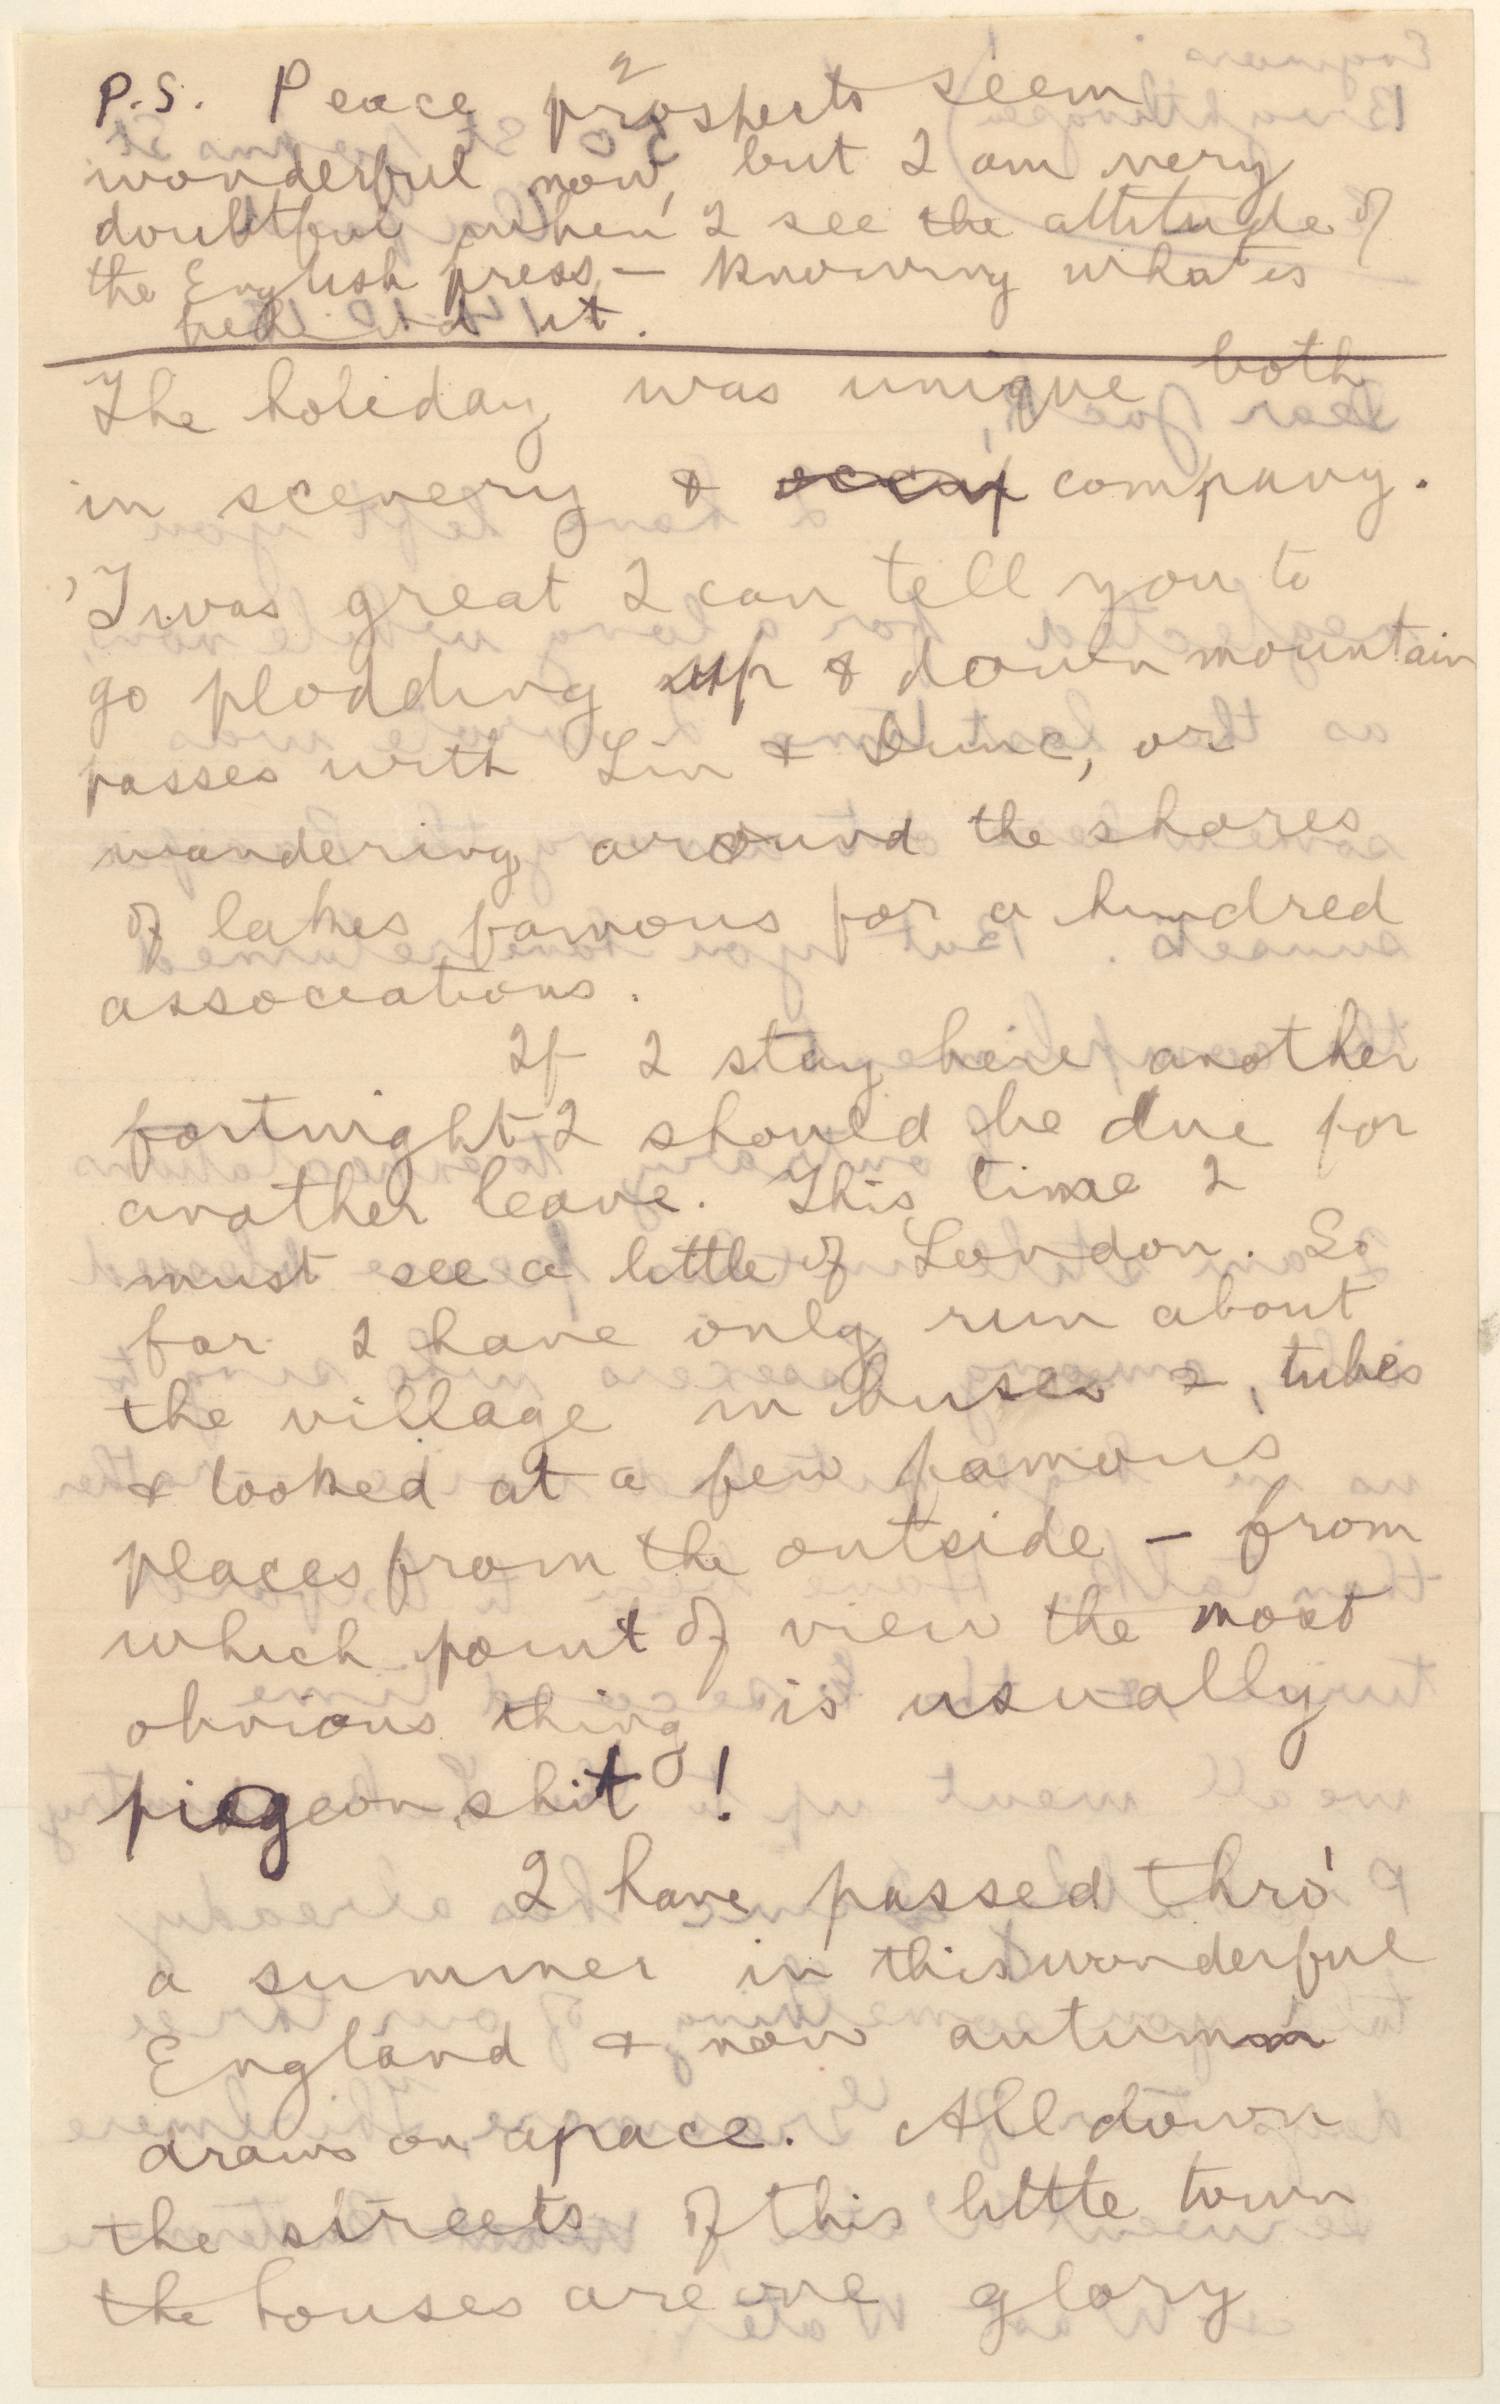 2
P.S. Peace prospects seem
wonderful now, but I am very
doubtful when I see the attitude of
the English press, — knowing what is
behind it.
The holiday was unique both
in scenery & company.
'Twas great I can tell you to
go plodding up & down mountain
passes with Lin & Dunc, or
wandering around the shores
of lakes famous for a hundred
associations.
If I stay here another
fortnight I should be due for
another leave. This time I
must see a little of London. So
far I have only run about
the village in buses & tubes
& looked at a few famous
places from the outside — from
which point of view the most
obvious thing is usually
pigeon shit!
I have passed thro'
a summer in this wonderful
England & now autumn
draws on apace. All down
the streets of this little town
the houses are one glory